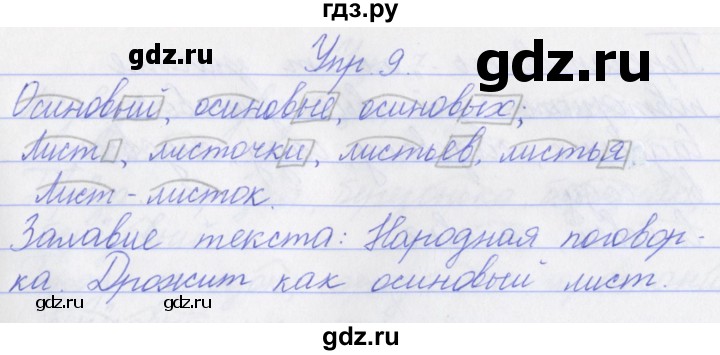 гдз.ру
gdz.ru
gdz.ru
Упр. 9.
Осиновый, осиновые, осиновых;
Лист, листочки, листьев, листья.
Лист - листок.
Залавие текста: Народная поговор-
ка. Дрожит как осиновый лист.
gdz.ru
gdz.ru
gdz.ru